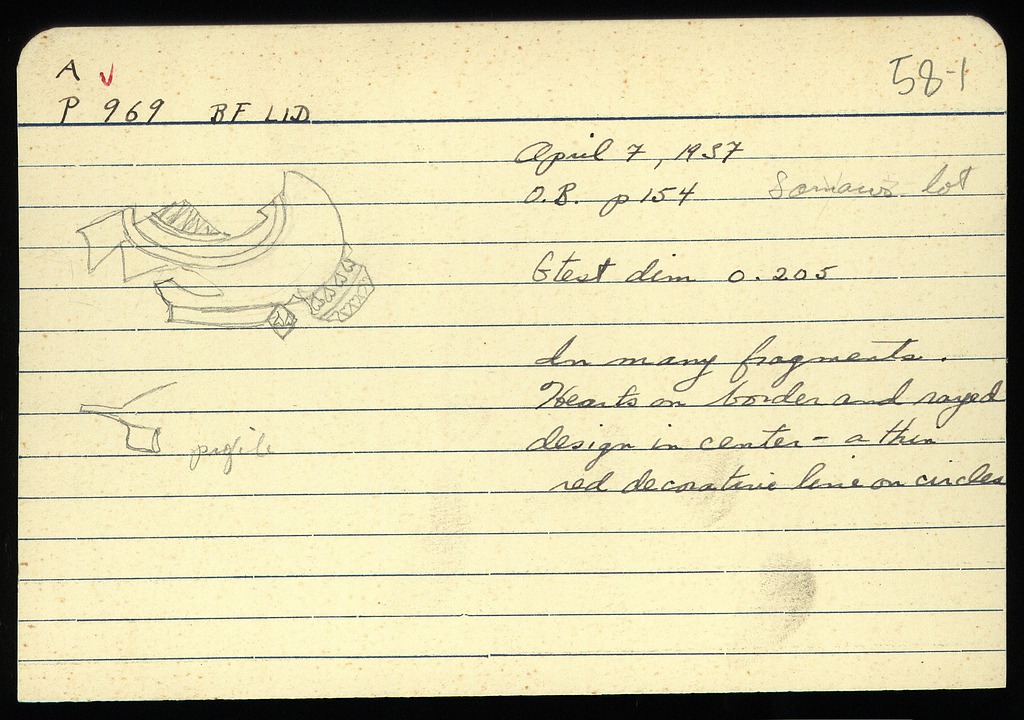 A
58-1
P 969 BF LID
April 7, 1937
O.B. p 154 lot
Gtest dim 0.205
In many fragments.
Hearts on border and rayed
design in center - a thin
red decorative line on circles
profile